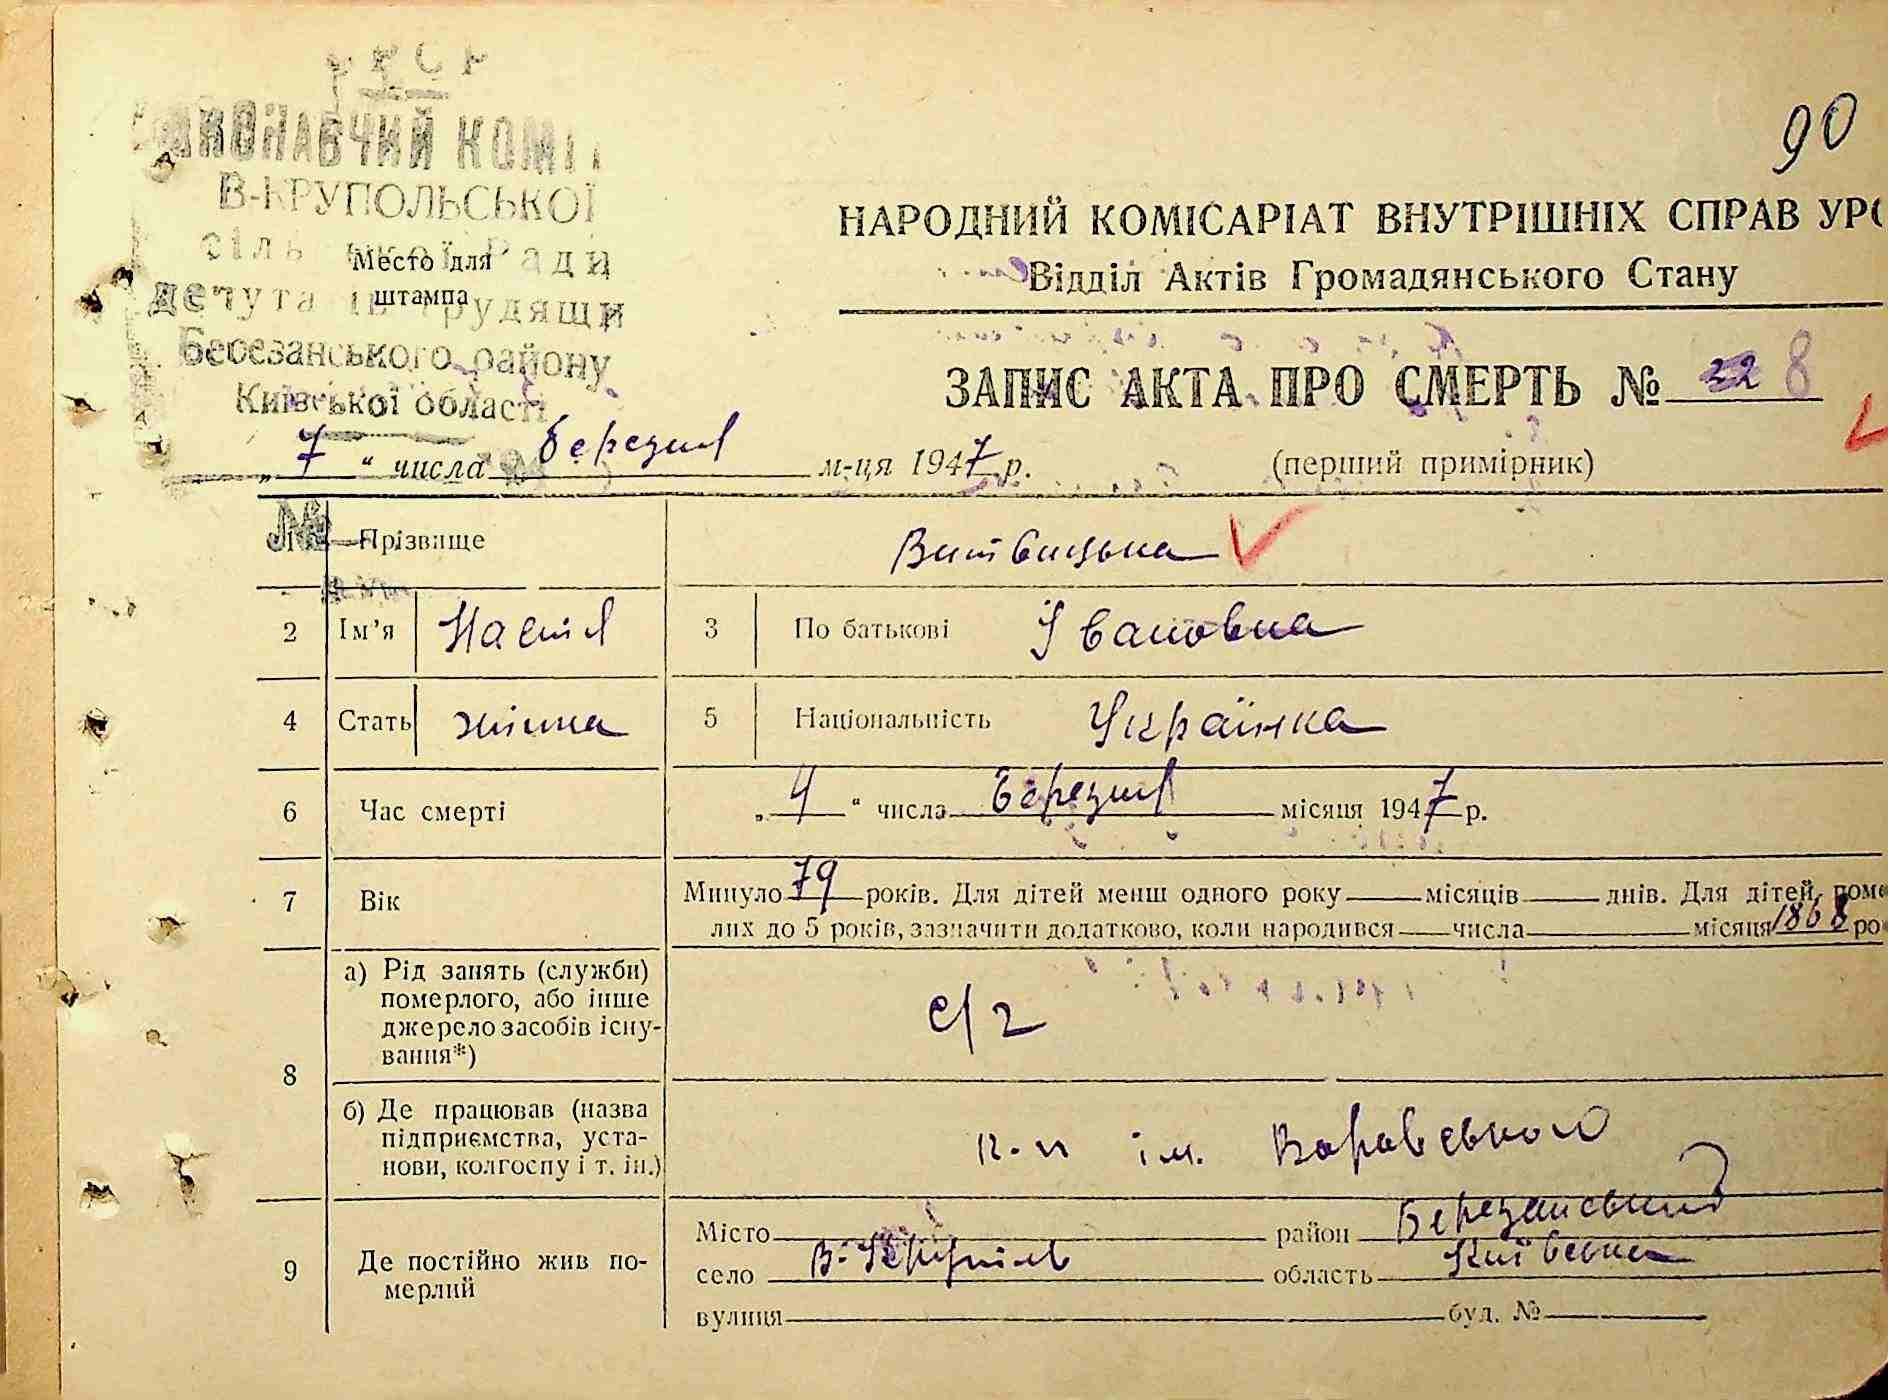 УРСР
ВИКОНАВЧИЙ КОМІТ
В-КРУПОЛЬСЬКОЇ
сільської Ради
депутатів трудящи
Березанського району
Київської області
Место для
штампа
90
НАРОДНИЙ КОМІСАРІАТ ВНУТРІШНІХ СПРАВ УРС
Відділ Актів Громадянського Стану
ЗАПИС АКТА ПРО СМЕРТЬ № 8
„7“ числа березня м-ця 1947 р.
(перший примірник)
Прізвище Витвицька
2 Ім'я Настя 3 По батькові Івановна
4 Стать жінка 5 Національність Українка
6 Час смерті „4“ числа березня місяця 1947 р.
7 Вік Минуло 79 років. Для дітей менш одного року місяців днів. Для дітей, поме
лих до 5 років, зазначити додатково, коли народився числа місяця 1868 ро
8 а) Рід занять (служби)
померлого, або інше
джерело засобів існу-
вання*)
с/г
б) Де працював (назва
підприємства, уста-
нови, колгоспу і т. ін.)
к-п ім.
9 Де постійно жив по-
мерлий
Місто район Березанський
село В-Крупіль область Київська
вулиця буд. №